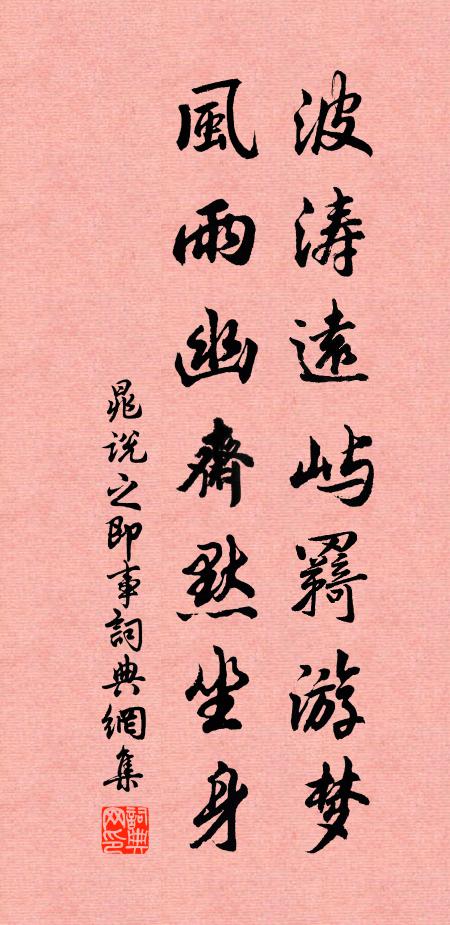 波涛遠屿羇游梦
風雨幽齋默坐身
晁說之即事詞典網集
詞典网印